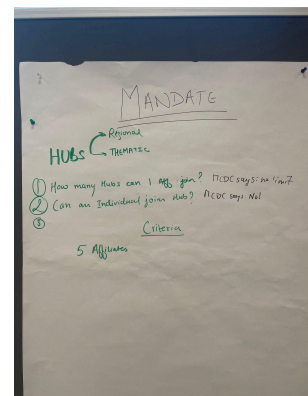 MANDATE
Regional
HUBS
THEMATIC
① How many Hubs can 1 Aff. join? MCDC says: no limit
② Can an Individual join Hub? MCDC says No!
③
Criteria
5 Affiliates